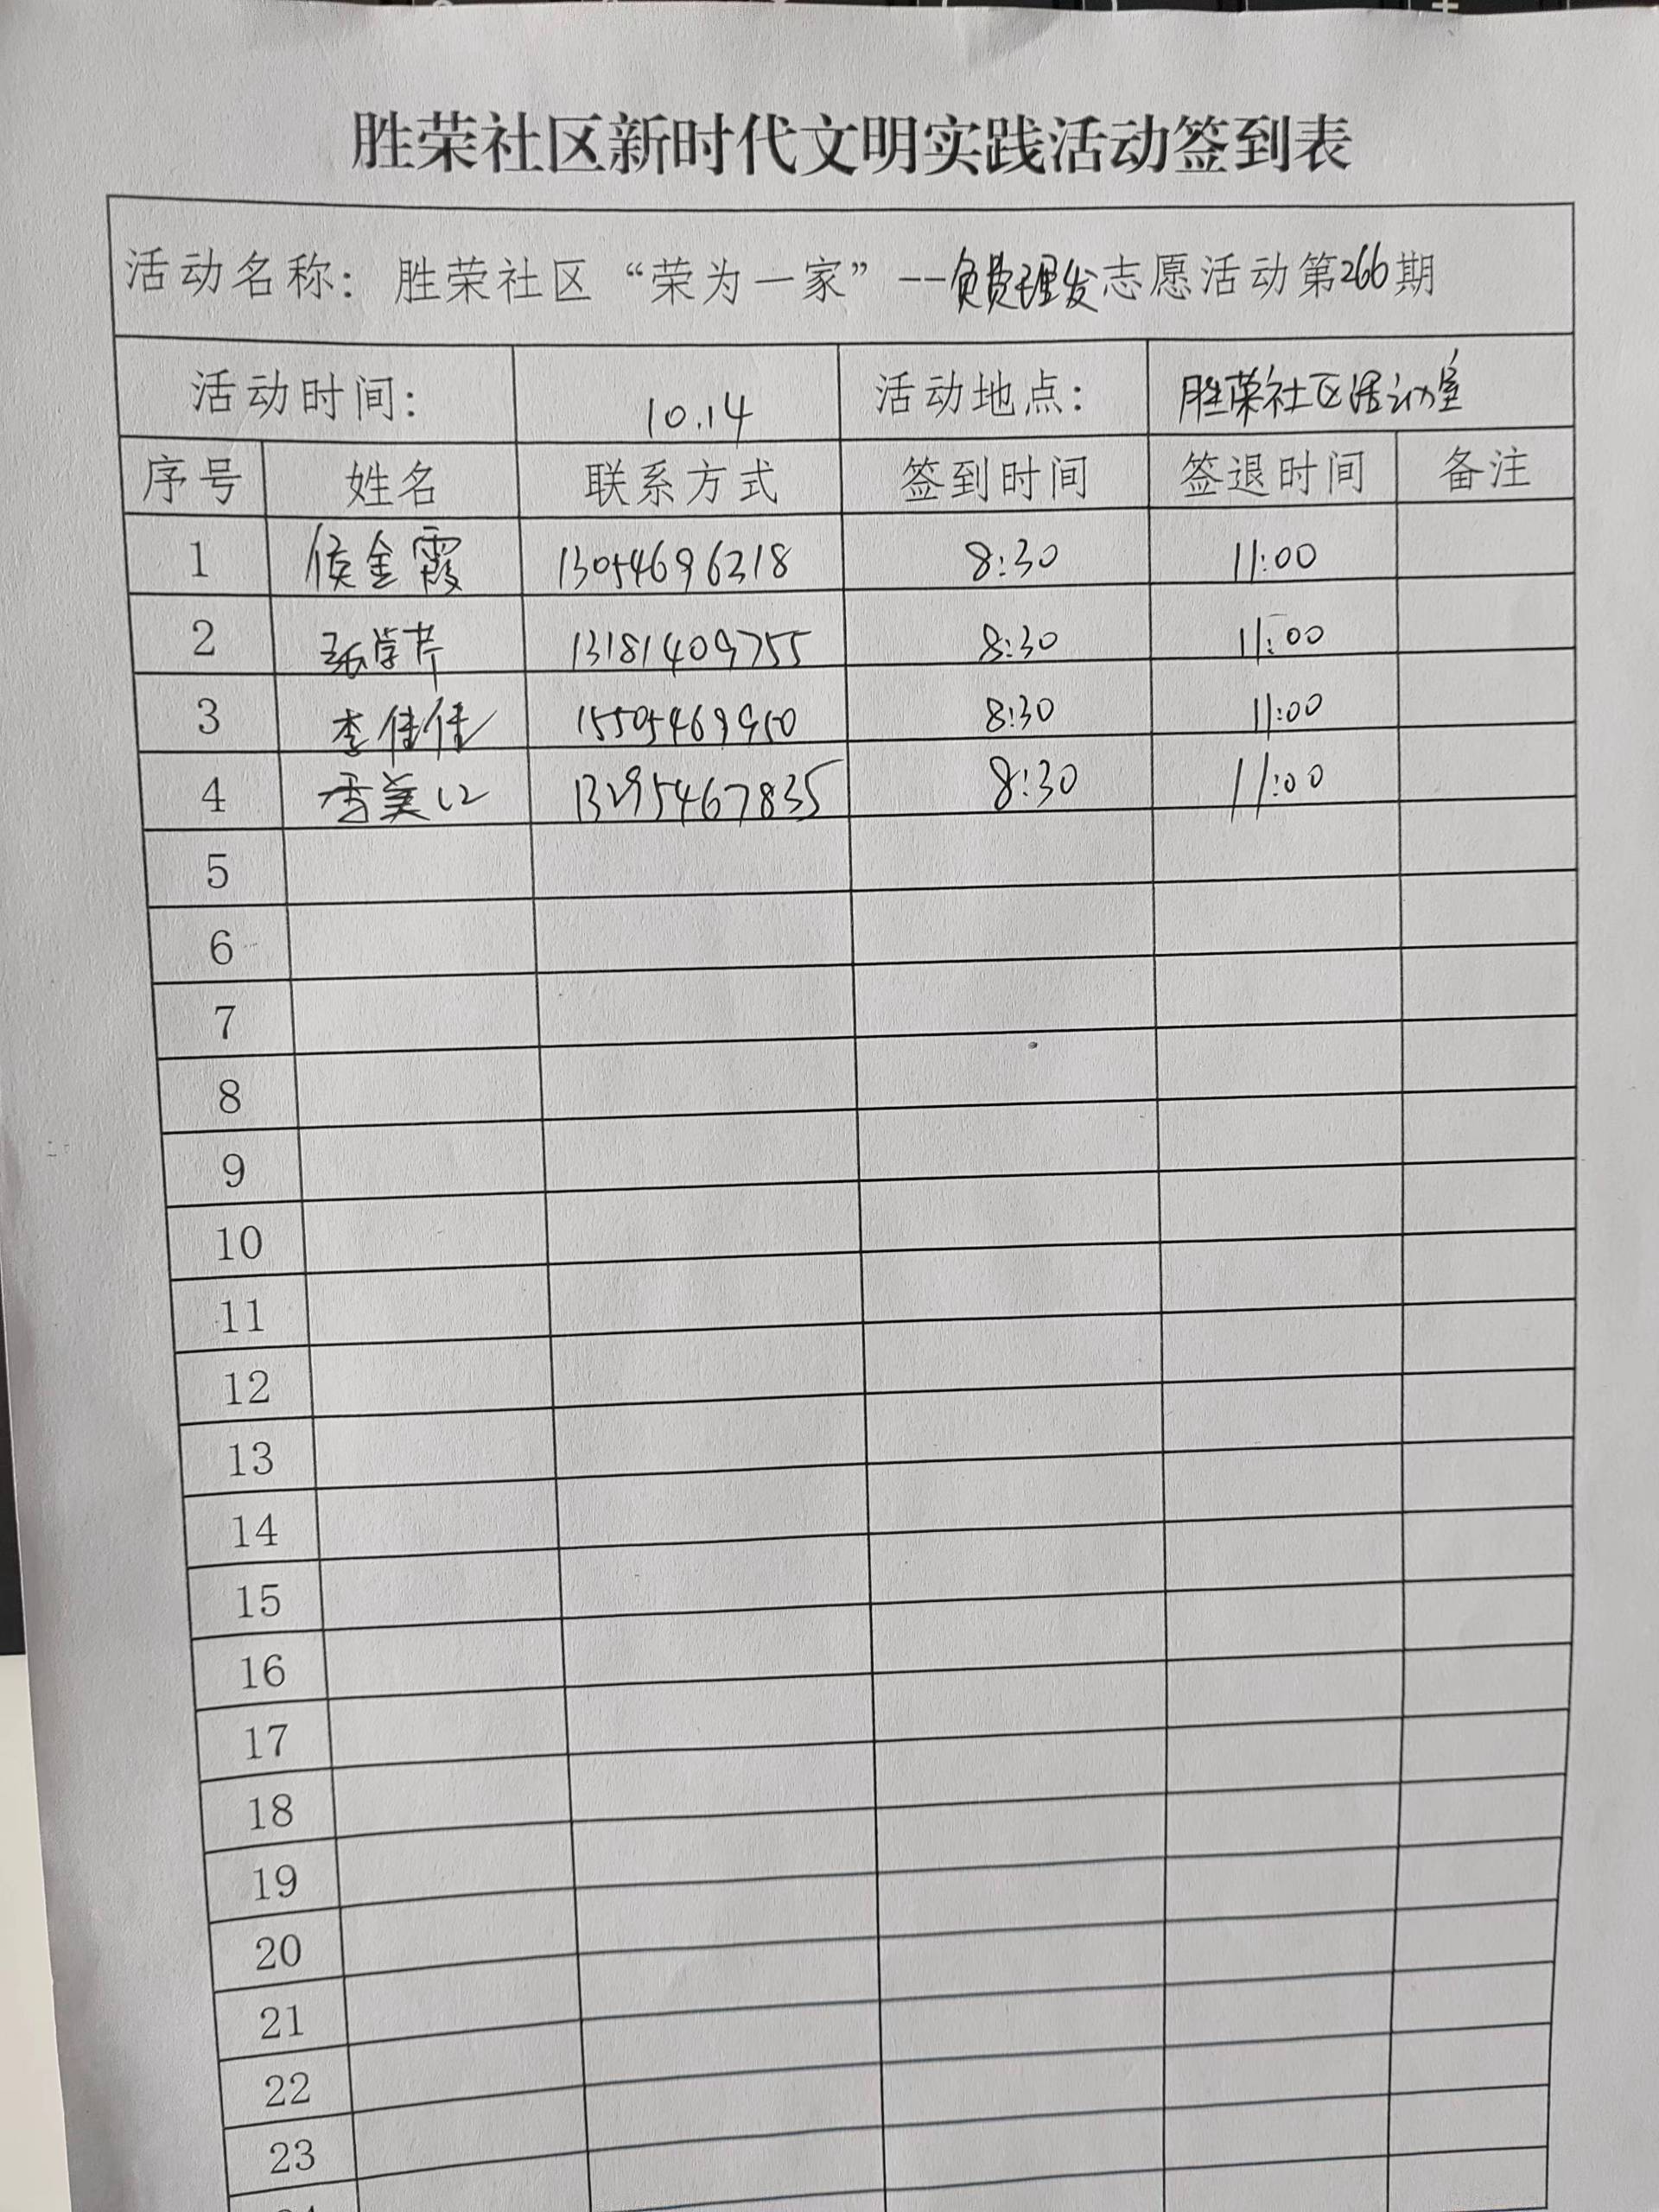 胜荣社区新时代文明实践活动签到表
活动名称：胜荣社区“荣为一家”--免费理发志愿活动第266期
活动时间： 10.14 活动地点： 胜荣社区活动室
序号 姓名 联系方式 签到时间 签退时间 备注
1 侯金霞 13054696218 8:30 11:00
2 张学芹 13181409755 8:30 11:00
3 李佳佳 15505469950 8:30 11:00
4 李美 13295467835 8:30 11:00
5
6
7
8
9
10
11
12
13
14
15
16
17
18
19
20
21
22
23